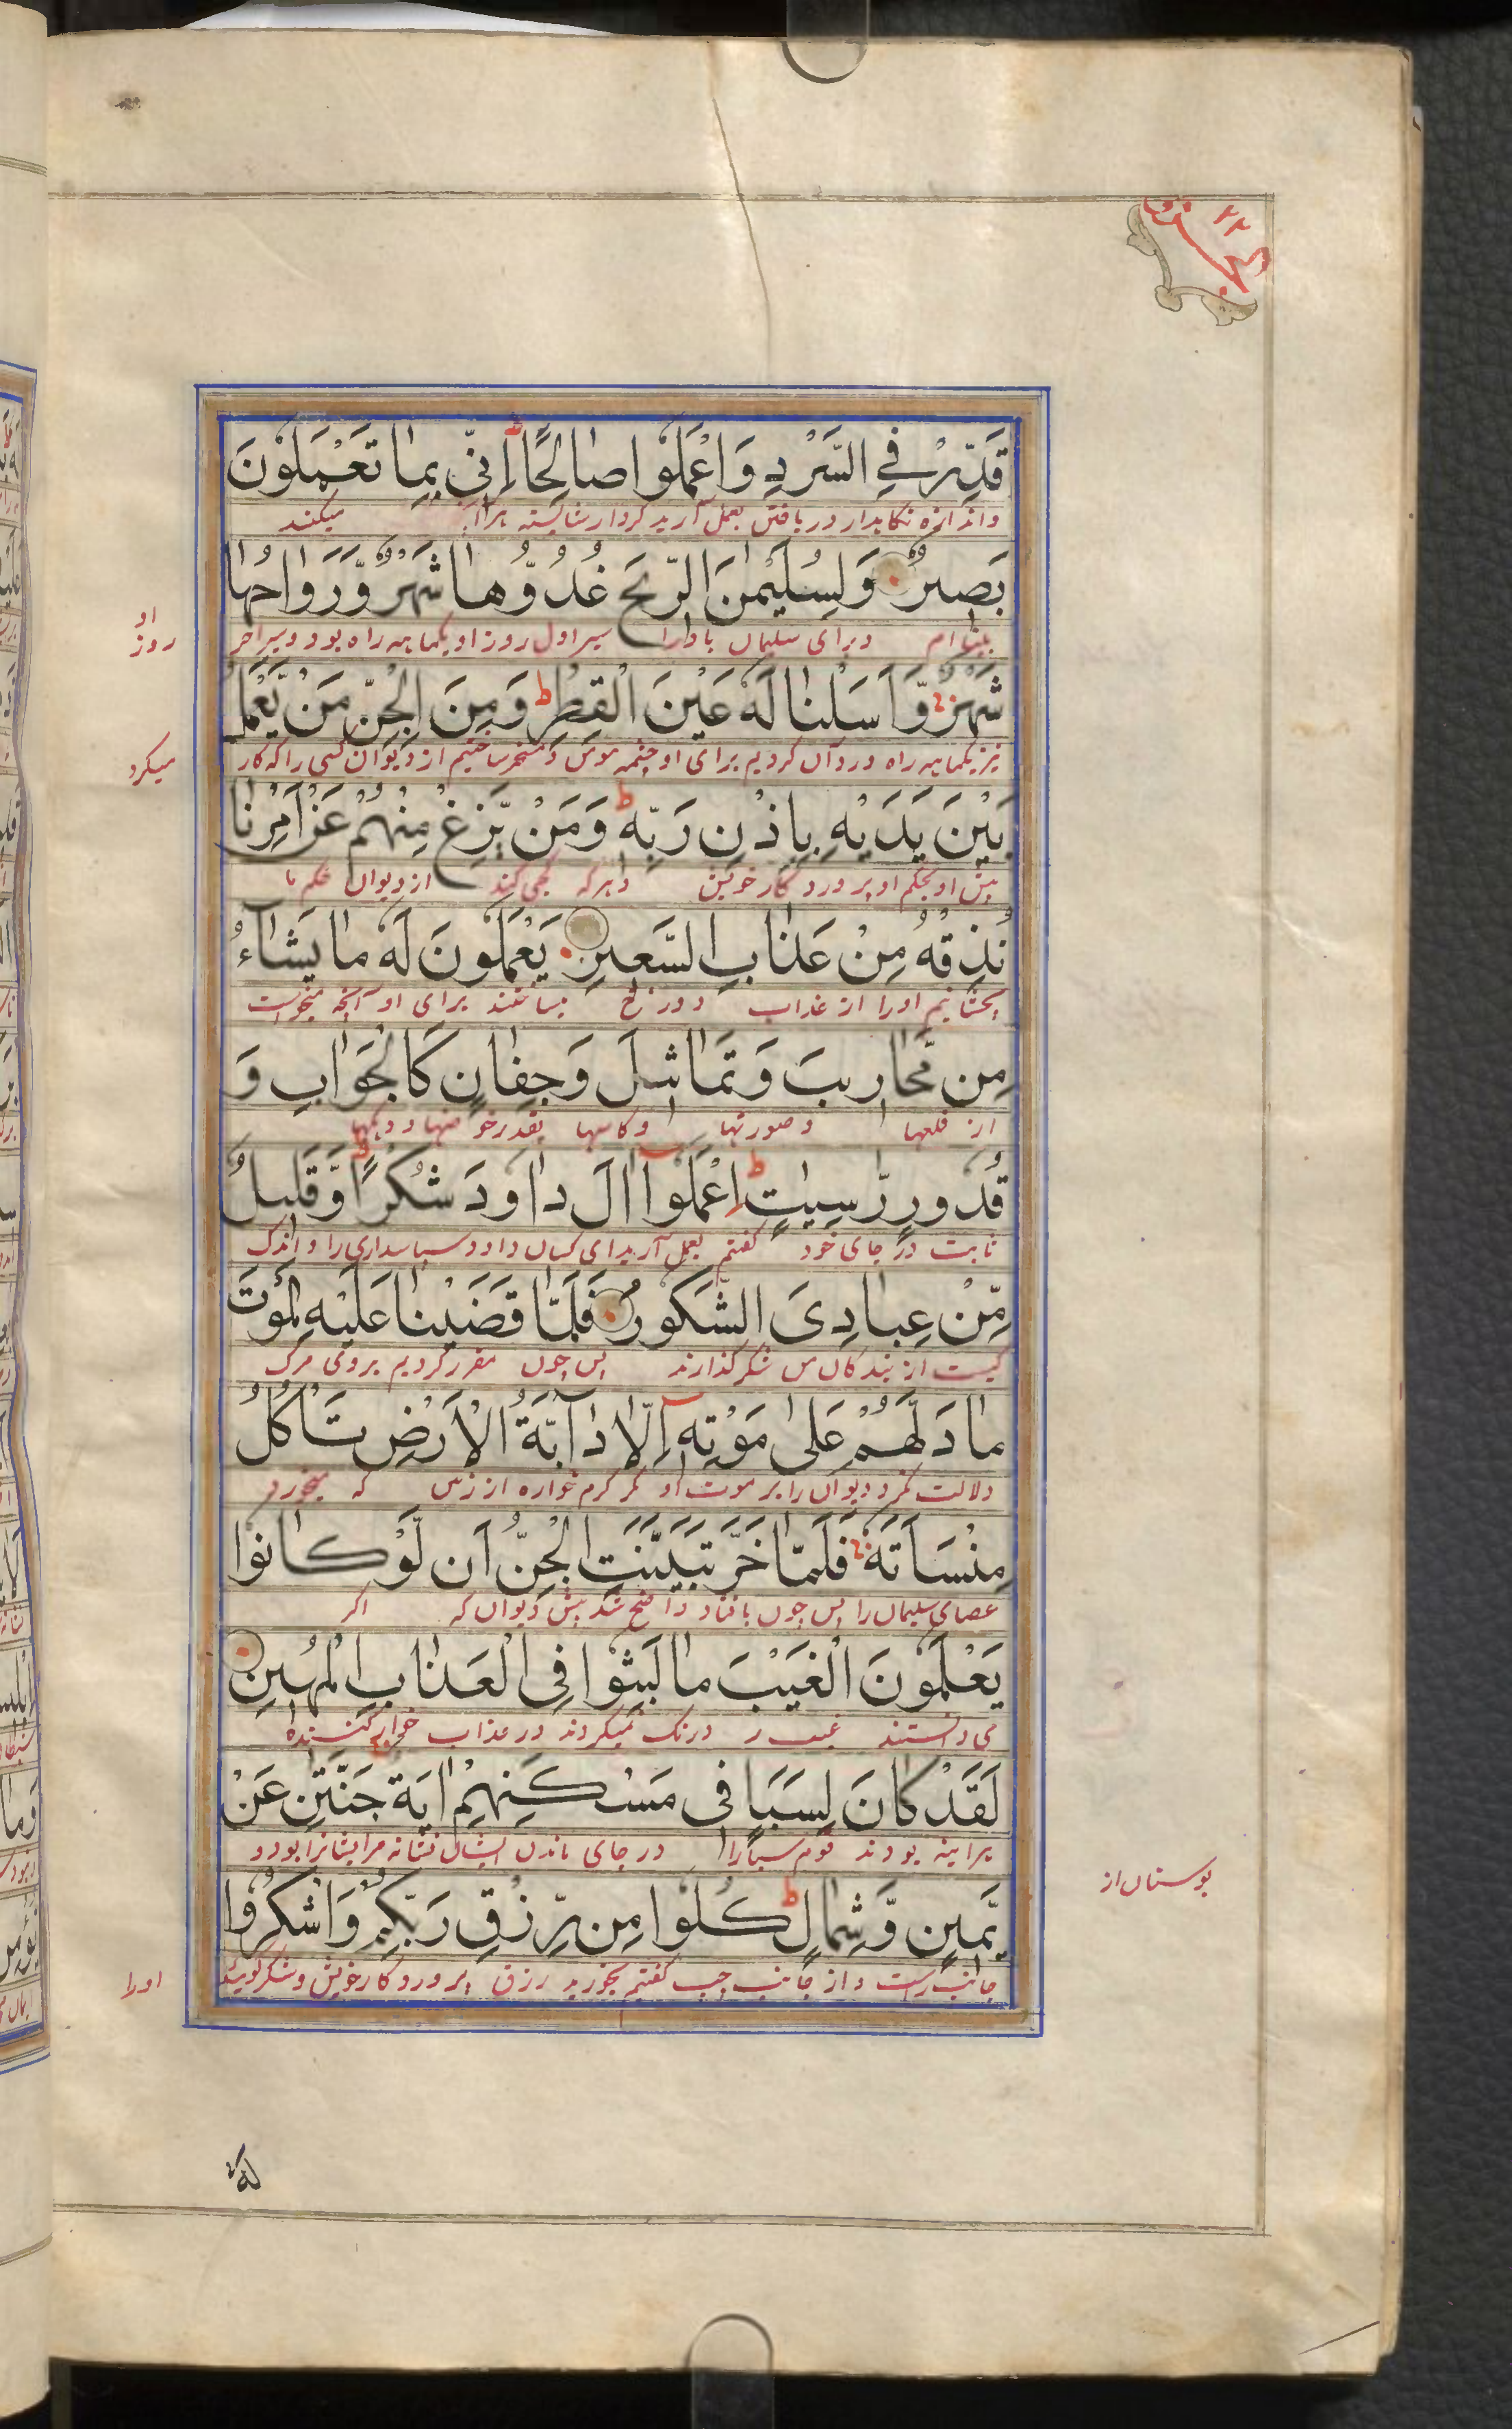 الجزو ٢٢
قَدِّرْ فِي السَّرْدِ وَاعْمَلُوا صَالِحًا ط اِنِّی بِمَا تَعْمَلُونَ
واندازه نگاهدار در بافتن بعمل آرید کردار شایسته هرآ میکنید
بَصِیرٌ وَلِسُلَیْمٰنَ الرِّیحَ غُدُوُّهَا شَهْرٌ وَّرَوَاحُهَا
بینا ام وبرای سلیمان باد را سیر اول روز او یکماهه راه بود وسیر آخر
او
روز
شَهْرٌ وَّاَسَلْنَا لَهٗ عَیْنَ الْقِطْرِ ط وَمِنَ الْجِنِّ مَنْ یَّعْمَلُ
نیز یکماهه راه و روان کردیم برای او چشمه مس و مسخر ساختیم از دیوان کسی را که کار
میکرد
بَیْنَ یَدَیْهِ بِاِذْنِ رَبِّهٖ ط وَمَنْ یَّزِغْ مِنْهُمْ عَنْ اَمْرِنَا
پیش او بحکم او پروردگار خویش و هر که کجی کند از دیوان حکم ما
نُذِقْهُ مِنْ عَذَابِ السَّعِیرِ یَعْمَلُونَ لَهٗ مَا یَشَآءُ
بچشانیم او را از عذاب دوزخ میساختند برای او آنچه میخواست
مِن مَّحَارِیبَ وَتَمَاثِیلَ وَجِفَانٍ كَالْجَوَابِ وَ
از قلعها و صورتها و کاسها بقدر حوضها و دیگها
قُدُورٍ رّٰسِیٰتٍ ط اِعْمَلُوٓا اٰلَ دَاوٗدَ شُكْرًا ط وَّقَلِیلٌ
ثابت در جای خود گفتیم بعمل آرید ای کسان داود سپاسداری را و اندک
مِّنْ عِبَادِیَ الشَّكُورُ فَلَمَّا قَضَیْنَا عَلَیْهِ الْمَوْتَ
کیست از بندگان من شکرگذارند پس چون مقرر کردیم بر وی مرگ
مَا دَلَّهُمْ عَلٰی مَوْتِهٖٓ اِلَّا دَآبَّةُ الْاَرْضِ تَاْكُلُ
دلالت نکرد دیوان را بر موت او مگر کرم خواره از زمین که میخورد
مِنْسَاَتَهٗ فَلَمَّا خَرَّ تَبَیَّنَتِ الْجِنُّ اَن لَّوْ كَانُوا
عصای سلیمان را پس چون بافتاد واضح شد پیش دیوان که اگر
یَعْلَمُونَ الْغَیْبَ مَا لَبِثُوا فِی الْعَذَابِ الْمُهِینِ
می دانستند غیب ر درنگ نمیکردند در عذاب خوار کننده
لَقَدْ كَانَ لِسَبَاٍ فِی مَسْكَنِهِمْ اٰیَة جَنَّتٰنِ عَنْ
هر آینه بودند قوم سبا را در جای ماندن ایشان نشانه مر ایشانرا بود دو
بوستان از
یَّمِینٍ وَّشِمَالٍ ط كُلُوا مِن رِّزْقِ رَبِّكُمْ وَاشْكُرُوا
جانب راست و از جانب چپ گفتیم بخورید رزق پروردگار خویش و شکر گوئید
اورا
لَهٗ